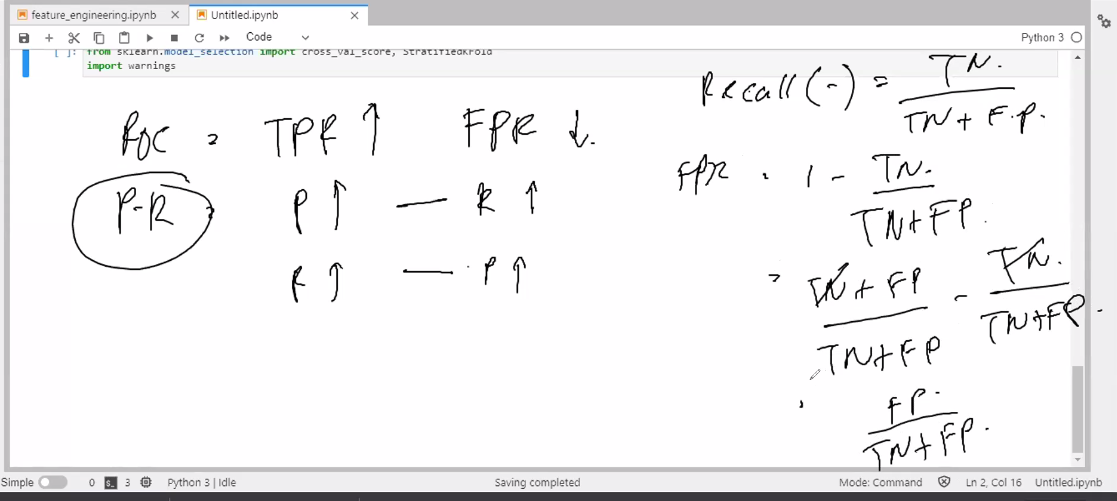 feature_engineering.ipynb
Untitled.ipynb
Code
Python 3
[ ]: from sklearn.model_selection import cross_val_score, StratifiedKFold
import warnings
Recall (-) = TN.
TN + F.P.
ROC = TPR ↑ FPR ↓.
FPR = 1 - TN.
TN + FP.
P-R = P ↑ — R ↑
R ↑ — P ↑
= TN + FP - TN.
TN + FP TN + FP.
= FP.
TN + FP.
Simple 0 3 Python 3 | Idle Saving completed Mode: Command Ln 2, Col 16 Untitled.ipynb